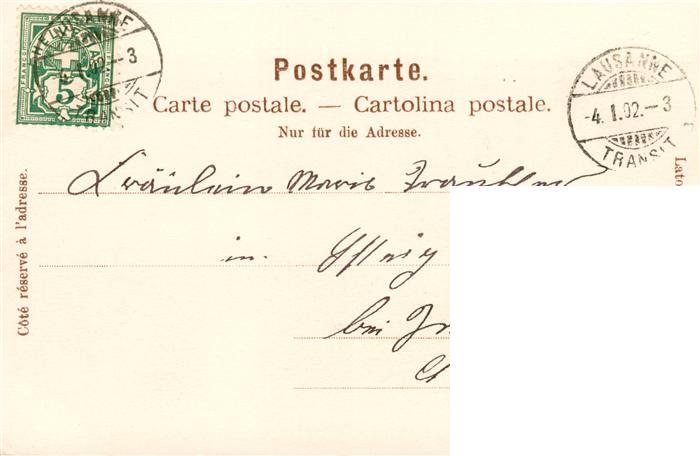 LAUSANNE
HELVETIA
FRANCO
5
Postkarte.
Carte postale. — Cartolina postale.
Nur für die Adresse.
LAUSANNE
-4.I.02.-3
TRANSIT
Côté réservé à l'adresse.
Lato
Fräulein Marie
in
bei